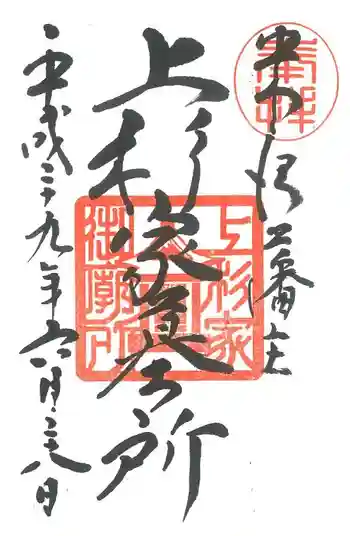 奉拝
米沢藩主
上杉家墓所
上杉家
御廟所
平成二十九年六月二十八日